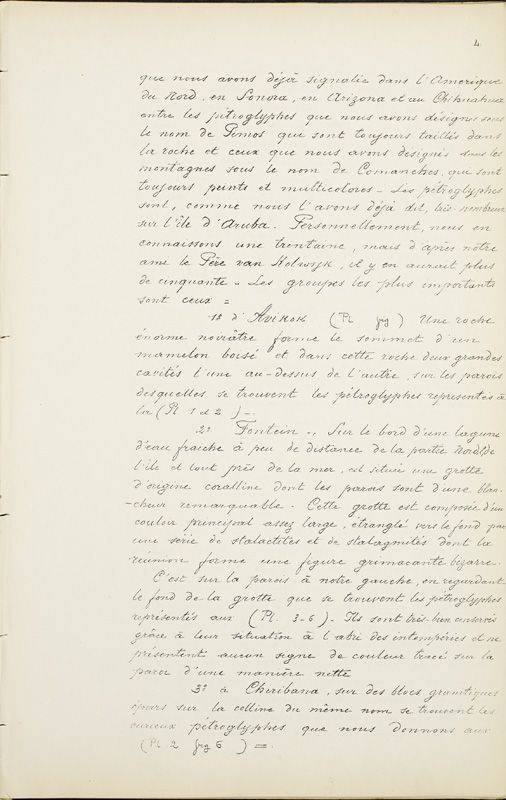 4.
que nous avons déjà signalée dans l'Amerique
du Nord, en Sonora, en Arizona et au Chihuahua
entre les pétroglyphes que nous avons désignés sous
le nom de Pimos qui sont toujours taillés dans
la roche et ceux que nous avons désignés sous les
montagnes sous le nom de Comanches, qui sont
toujours peints et multicolores - Les pétroglyphes
sont, comme nous l'avons déjà dit, très nombreux
sur l'île d'Aruba. Personnellement, nous en
connaissons une trentaine, mais d'après notre
ami le Père van Kolwsyk, il y en aurait plus
de cinquante - Les groupes les plus importants
sont ceux =
1º d'Avikok (Pl fig ) Une roche
énorme noirâtre forme le sommet d'un
mamelon boisé et dans cette roche deux grandes
cavités l'une au-dessus de l'autre, sur les parois
desquelles se trouvent les pétroglyphes représentés à
la (Pl 1 et 2 ) -.
2º Fontein -. Sur le bord d'une lagune
d'eau fraiche à peu de distance de la partie Nord de
l'île et tout près de la mer, est située une grotte
d'origine coralline dont les parois sont d'une blan-
-cheur remarquable. Cette grotte est composée d'un
couloir principal assez large, étranglé vers le fond par
une série de stalactites et de stalagmites dont la
réunion forme une figure grimacante bizarre.
C'est sur la parois à notre gauche, en regardant
le fond de la grotte que se trouvent les pétroglyphes
représentés aux (Pl. 3-6). Ils sont très-bien conservés
grâce à leur situation à l'abri des intempéries et ne
présentent aucun signe de couleur tracé sur la
paroi d'une manière nette
3º à Chiribana, sur des blocs granitiques
épars sur la colline du même nom se trouvent les
curieux pétroglyphes que nous donnons aux
(Pl 2 fig 6 ) =.